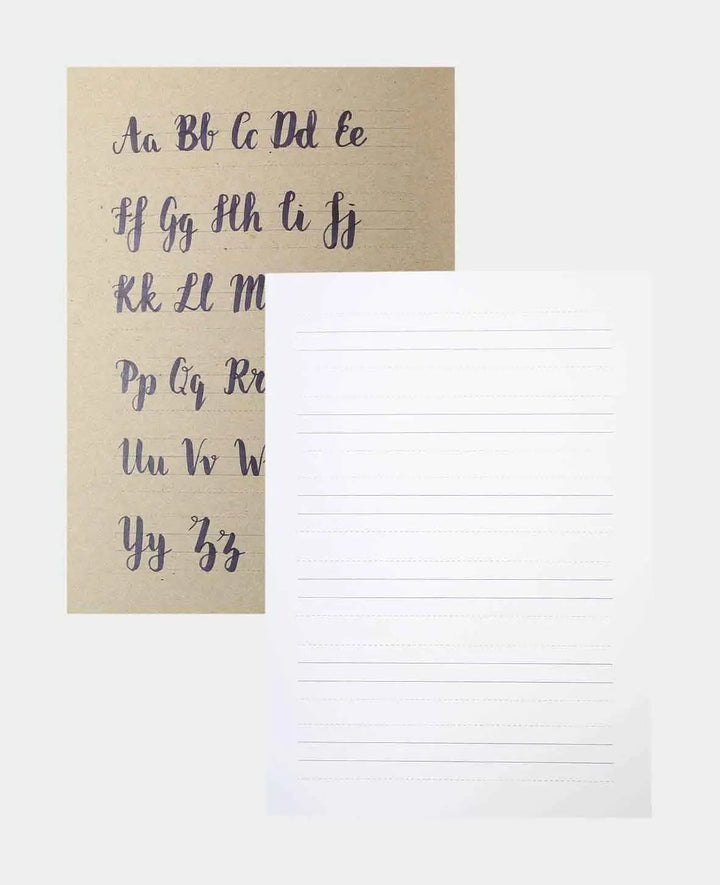 Aa Bb Cc Dd Ee
Ff Gg Hh Ii Jj
Kk Ll M
Pp Qq Rr
Uu Vv W
Yy Zz